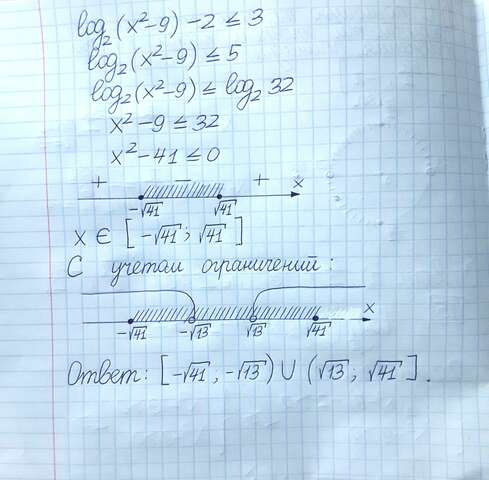 log₂(x²-9) -2 ≤ 3
log₂(x²-9) ≤ 5
log₂(x²-9) ≤ log₂ 32
x²-9 ≤ 32
x²-41 ≤ 0
+ − + x
-√41 √41
x ∈ [-√41; √41]
С учетом ограничений:
x
-√41 -√13 √13 √41
Ответ: [-√41, -√13) ∪ (√13; √41].